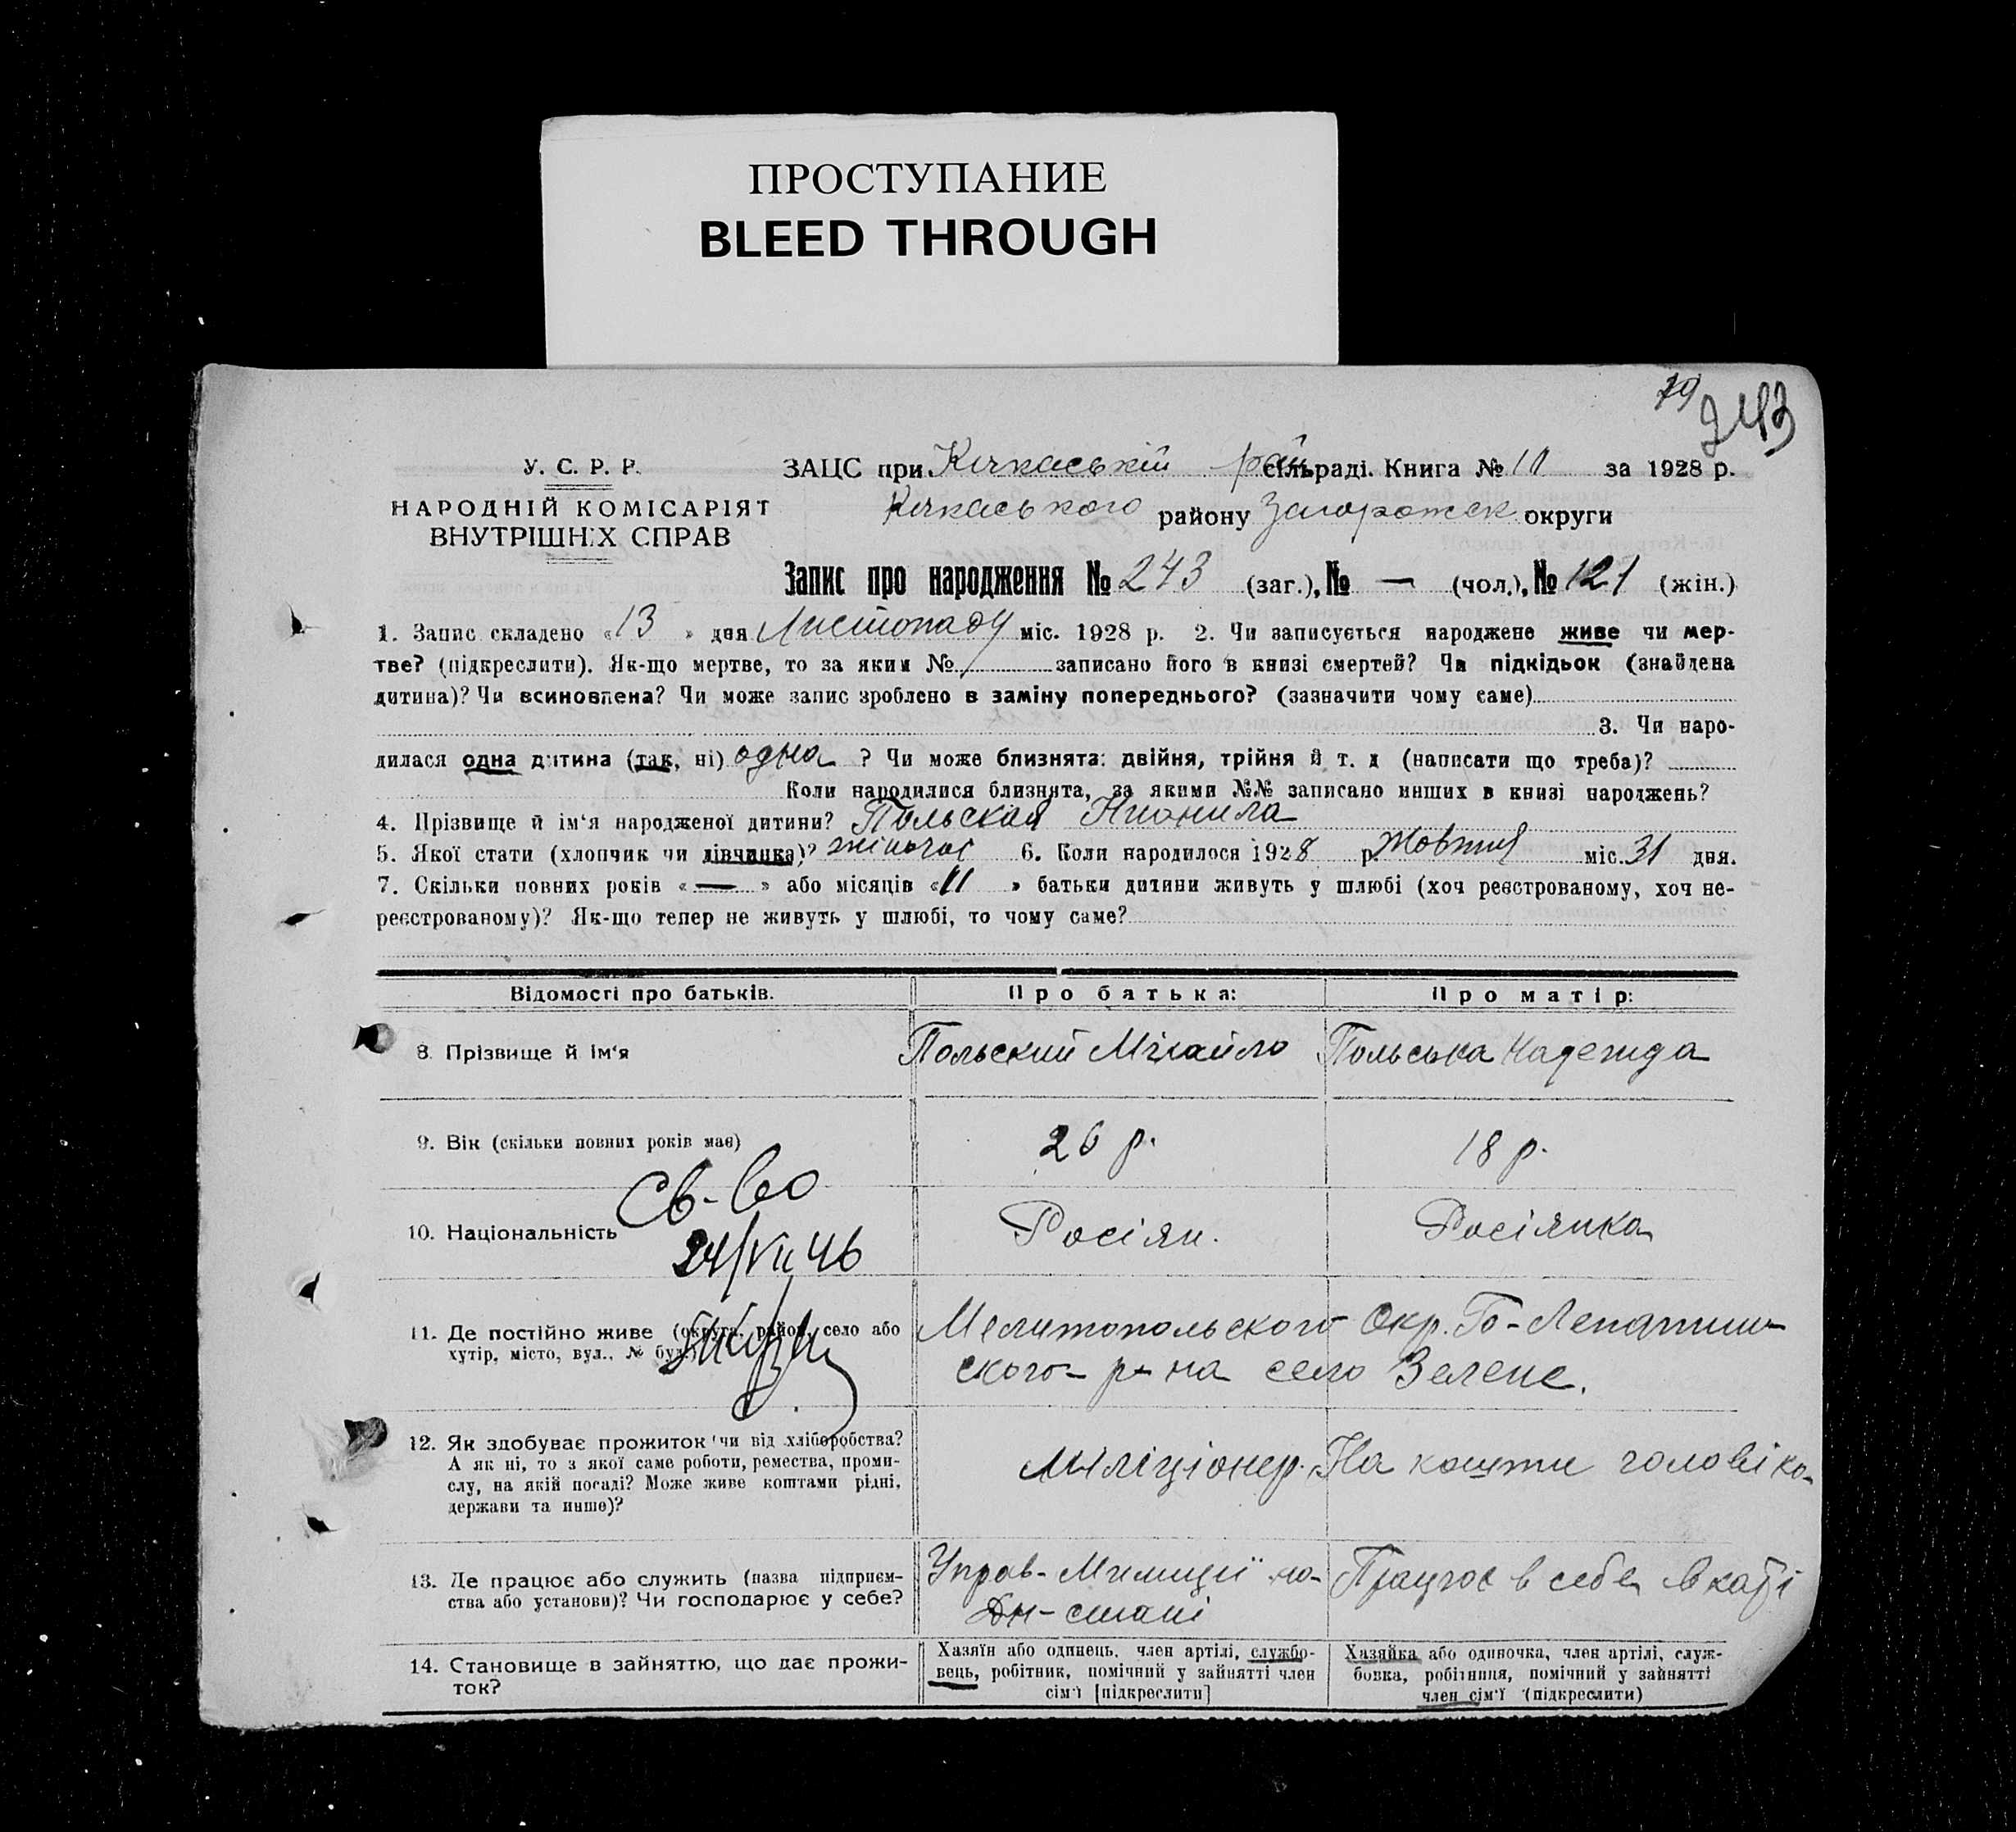 ПРОСТУПАНИЕ
BLEED THROUGH
243
У. С. Р. Р.
НАРОДНІЙ КОМІСАРІЯТ
ВНУТРІШНІХ СПРАВ
ЗАЦС при Кічкаській рай сільраді. Книга № за 1928 р.
Кічкаського району Запорожск округи
Запис про народження № 243 (заг.), № — (чол.), № 121 (жін.)
1. Запис складено «13» дня Листопаду міс. 1928 р. 2. Чи записується народжене живе чи мер-
тве? (підкреслити). Як-що мертве, то за яким № записано його в книзі смертей? Чи підкідьок (знайдена
дитина)? Чи всиновлена? Чи може запис зроблено в заміну попереднього? (зазначити чому саме)
3. Чи наро-
дилася одна дитина (так, ні) одна ? Чи може близнята: двійня, трійня й т. д (написати що треба)?
Коли народилися близнята, за якими №№ записано инших в книзі народжень?
4. Прізвище й ім'я народженої дитини? Польская Нионила
5. Якої стати (хлопчик чи дівчинка)? 6. Коли народилося 1928 р. Жовтня міс. 31 дня.
7. Скільки повних років «—» або місяців «11» батьки дитини живуть у шлюбі (хоч реєстрованому, хоч не-
реєстрованому)? Як-що тепер не живуть у шлюбі, то чому саме?
Відомості про батьків. Про батька: Про матір:
8. Прізвище й ім'я Польский Міхайло Польська Надежда
9. Вік (скільки повних років має) 26 р. 18 р.
Св-во
10. Національність Росіян. Росіянка
24/VII 46
11. Де постійно живе (округа, район, село або Мелитопольского Окр.
хутір, місто, вул., № буд.) ского р-на село Зелене.
12. Як здобуває прожиток чи від хліборобства? Міліціонер. На кошти чоловіка
А як ні, то з якої саме роботи, ремества, проми-
слу, на якій посаді? Може живе коштами рідні,
держави та инше)?
13. Де працює або служить (назва підприєм- Управ- Милиції Працює в себе в хаті
ства або установи)? Чи господарює у себе?
14. Становище в зайняттю, що дає прожи-
ток?
Хазяїн або одинець, член артілі, службо-
вець, робітник, помічний у зайнятті член
сім'ї [підкреслити]
Хазяйка або одиночка, член артілі, служ-
бовка, робітниця, помічний у зайнятті
член сім'ї (підкреслити)